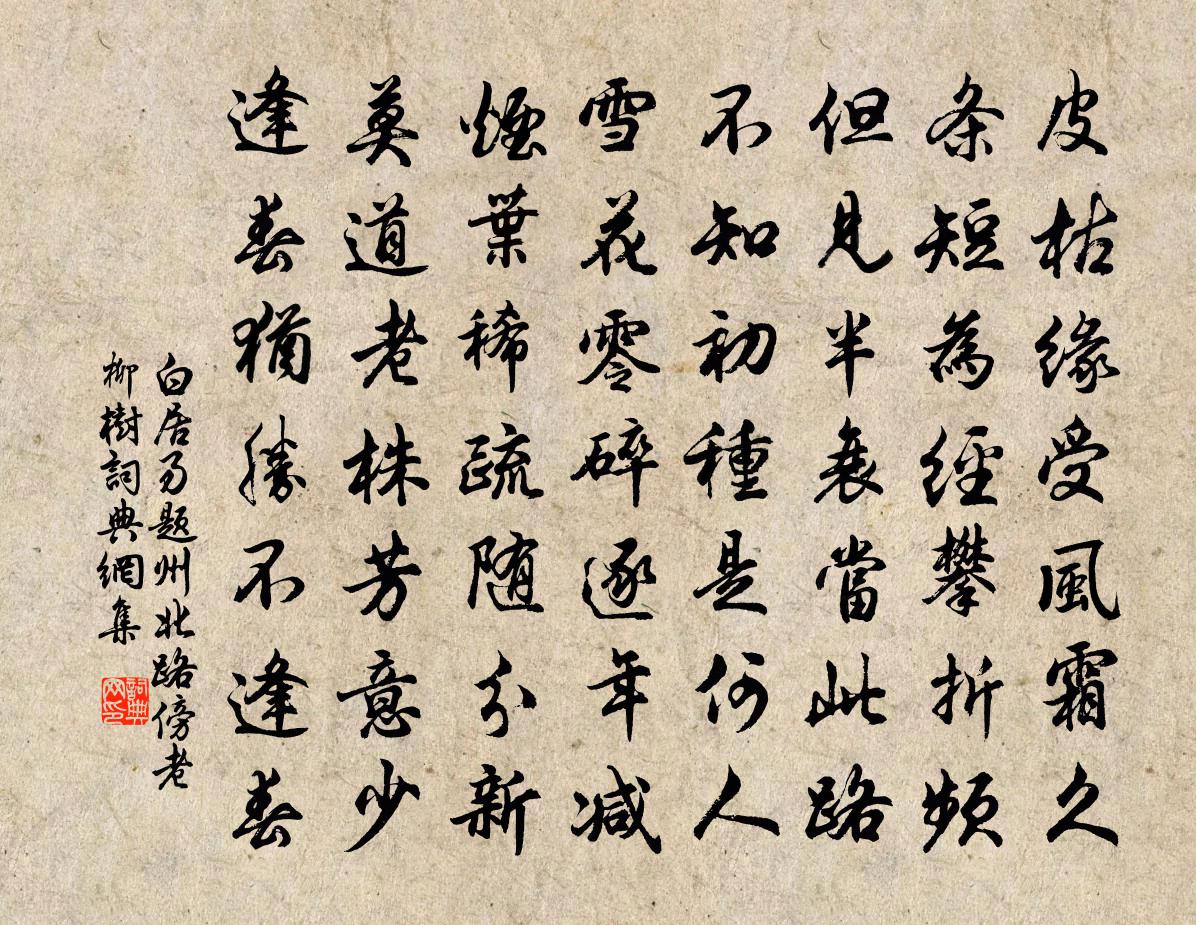 皮枯緣受風霜久
条短為經攀折頻
但見半衰當此路
不知初種是何人
雪花零碎逐年減
煙葉稀疏随分新
莫道老株芳意少
逢春猶勝不逢春
白居易題州北路傍老
柳樹詞典網集
詞典
网印